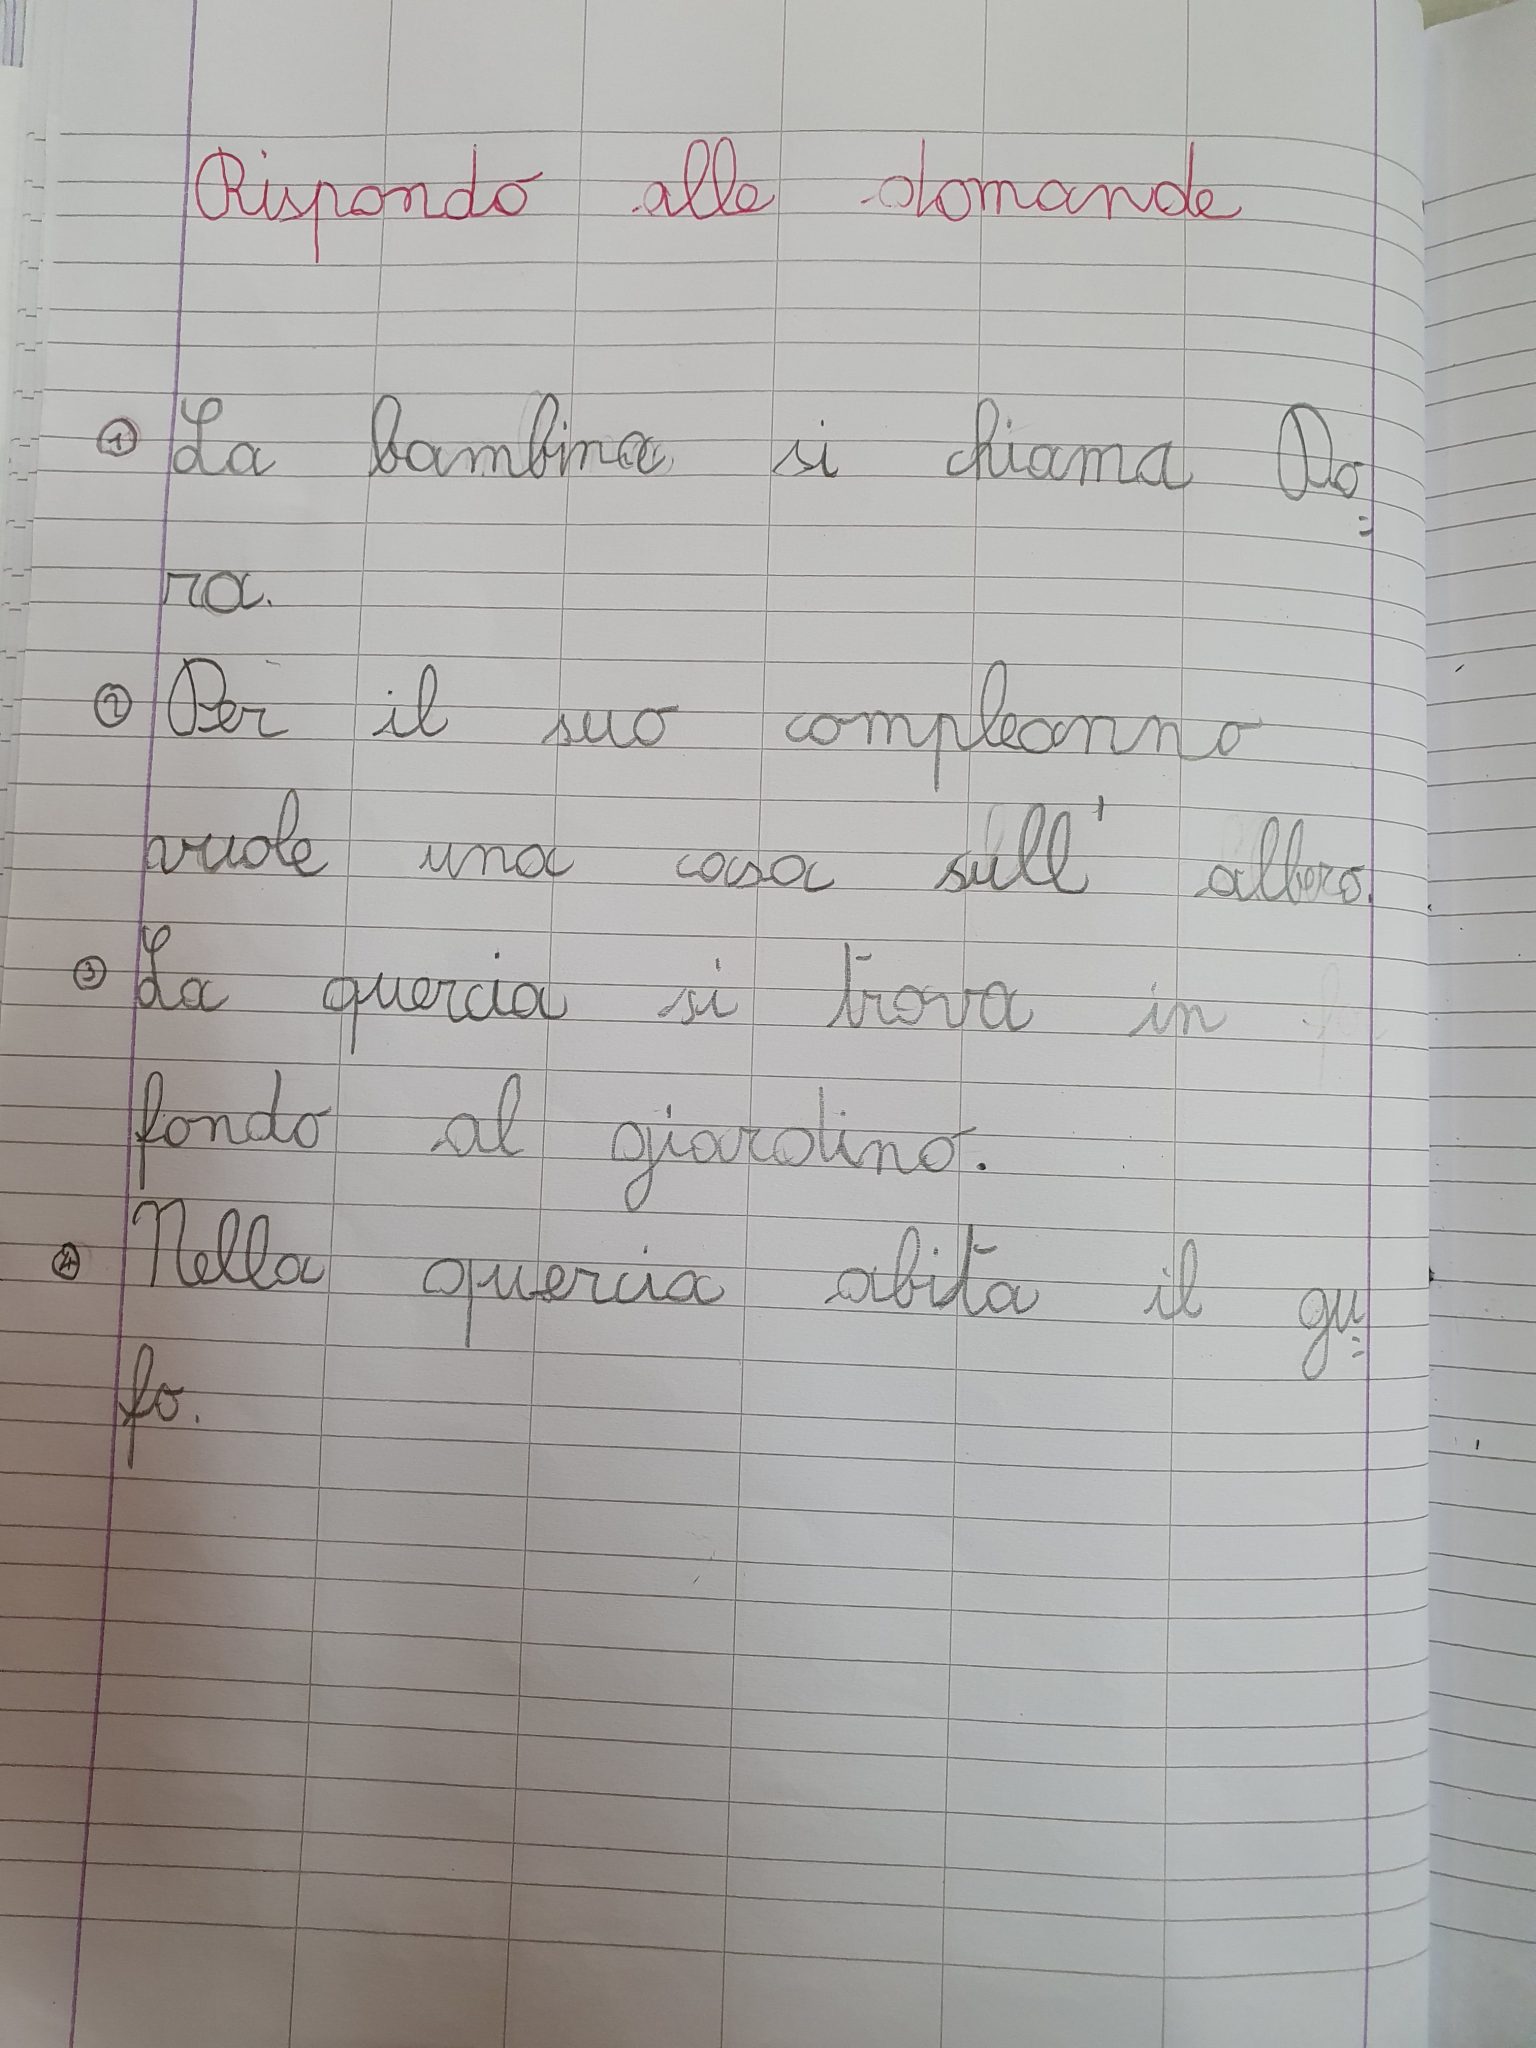 Rispondo alle domande
① La bambina si chiama Do=
ra.
② Per il suo compleanno
vuole una casa sull' albero.
③ La quercia si trova in
fondo al giardino.
④ Nella quercia abita il gu=
fo.